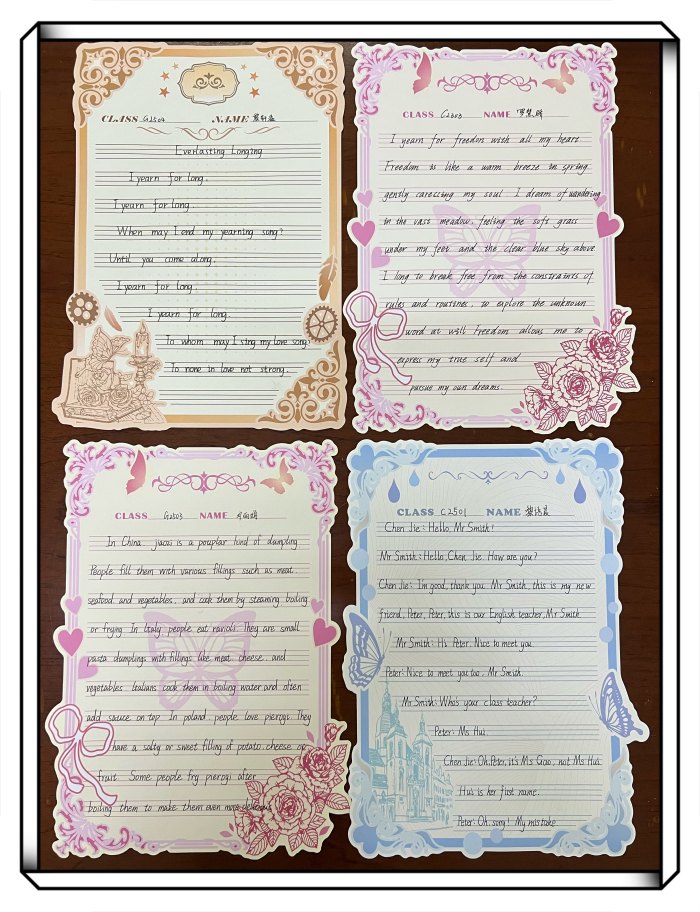 CLASS G2504 NAME
Everlasting Longing
I yearn for long.
I yearn for long.
When may I end my yearning song?
Until you come along.
I yearn for long.
I yearn for long.
To whom may I sing my love song?
To none in love not strong.
CLASS C2303 NAME
I yearn for freedon with all my heart
Freedom is like a warm breeze in spring
gently caressing my soul I dream of wandering
in the vast meadow, feeling the soft grass
under my feet and the clear blue sky above
I long to break free from the constraints of
rules and routines, to explore the unknown
word at will freedom allows me to
express my true self and
parsue my own dreams.
CLASS G2503 NAME
In China jiaozi is a pouplar kind of dumpling
People fill them with various fillings such as meat
seafood and vegetables, and cook them by steaming boiling
or frying In Italy, people eat ravioli They are small
pasta dumplings with fillings like meat, cheese, and
vegetables. Italians cook them in boiling water and often
add sauce on top In poland, people love pierogi. They
have a salty or sweet filling of potato cheese or
fruit Some people fry pierogi after
boiling them to make them even more delicious
CLASS C2501 NAME
Chen Jie: Hello, Mr Smith!
Mr Smith: Hello, Chen Jie. How are you?
Chen Jie: Im good, thank you Mr Smith, this is my new
friend, Peter, Peter, this is our English teacher, Mr Smith
Mr Smith: Hi Peter. Nice to meet you.
Peter: Nice to meet you too, Mr Smith.
Mr Smith: Whos your class teacher?
Peter: Ms Hui.
Chen Jie: Oh, Peter, it's Ms Gao, not Ms Hui.
Hui is her first name.
Peter: Oh, sorry! My mistake